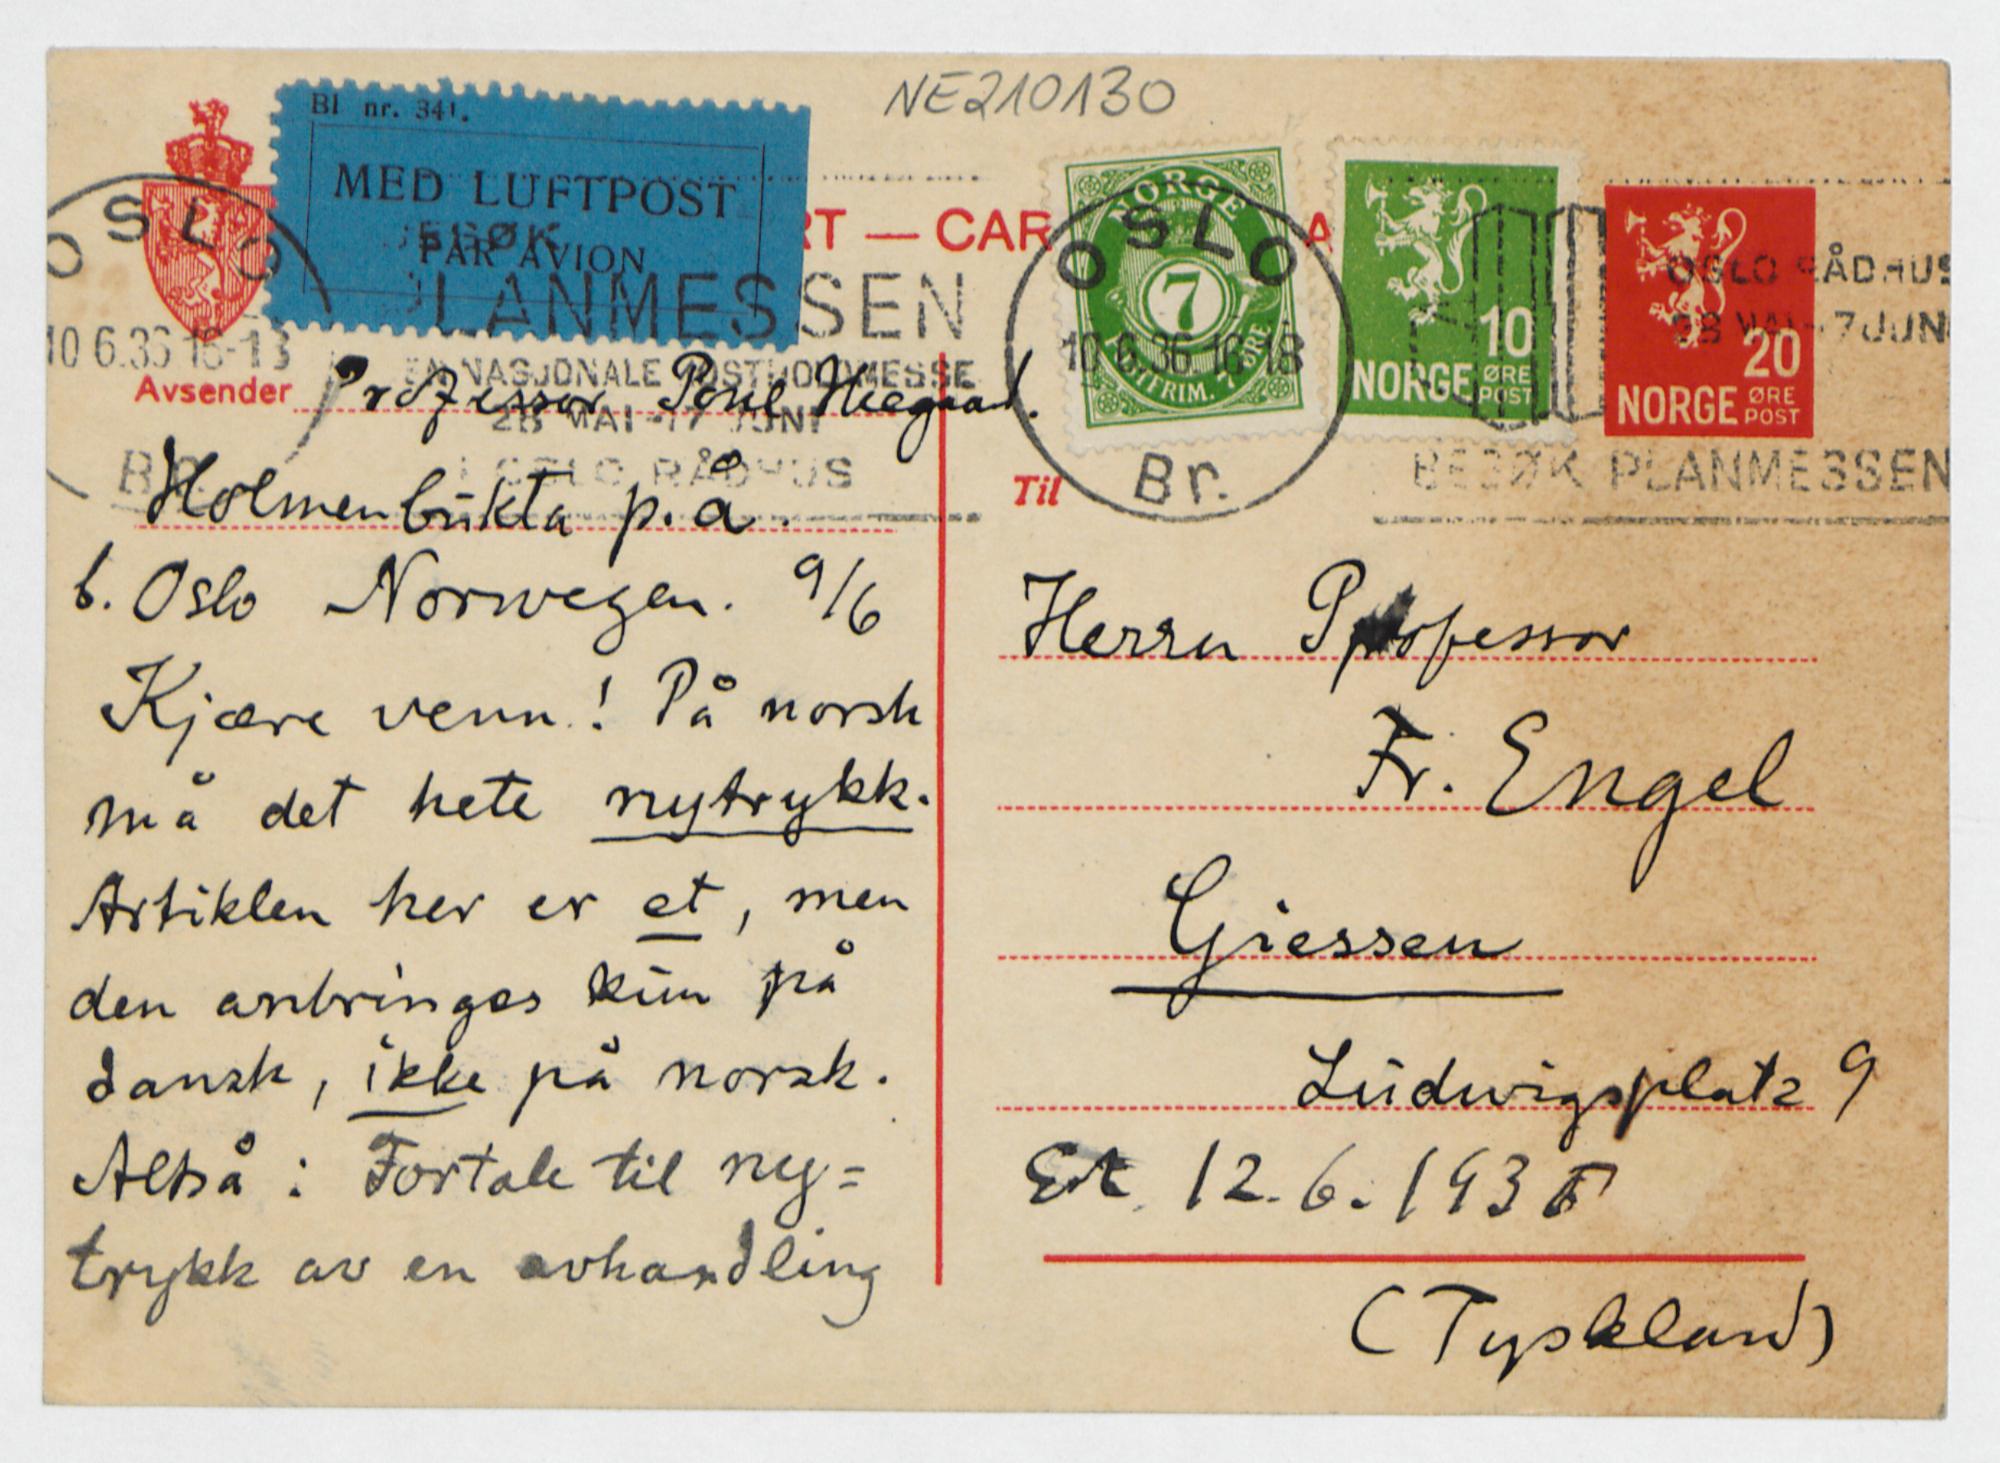 NE210130
Bl nr. 341.
MED LUFTPOST
PAR AVION
RT — CAR
OSLO
10 6.36 16-18
Br.
BESØK
PLANMESSEN
28 MAI - 17 JUNI
I OSLO RÅDHUS
NORGE
7
POSTFRIM. 7 ØRE
OSLO
10.6.36 16-18
Br.
10
NORGE ØRE
POST
20
NORGE ØRE
POST
OSLO RÅDHUS
28 MAI - 17 JUNI
BESØK PLANMESSEN
Avsender Professor Poul Heegaard.
Holmenbukta p.å.
b. Oslo Norwegen. 9/6
Kjære venn! På norsk
må det hete nytrykk.
Artiklen her er et, men
den anbringes kun på
dansk, ikke på norsk.
Altså: Fortale til ny=
trykk av en avhandling
Til
Herrn Professor
Fr. Engel
Giessen
Ludwigsplatz 9
12.6.193
(Tyskland)